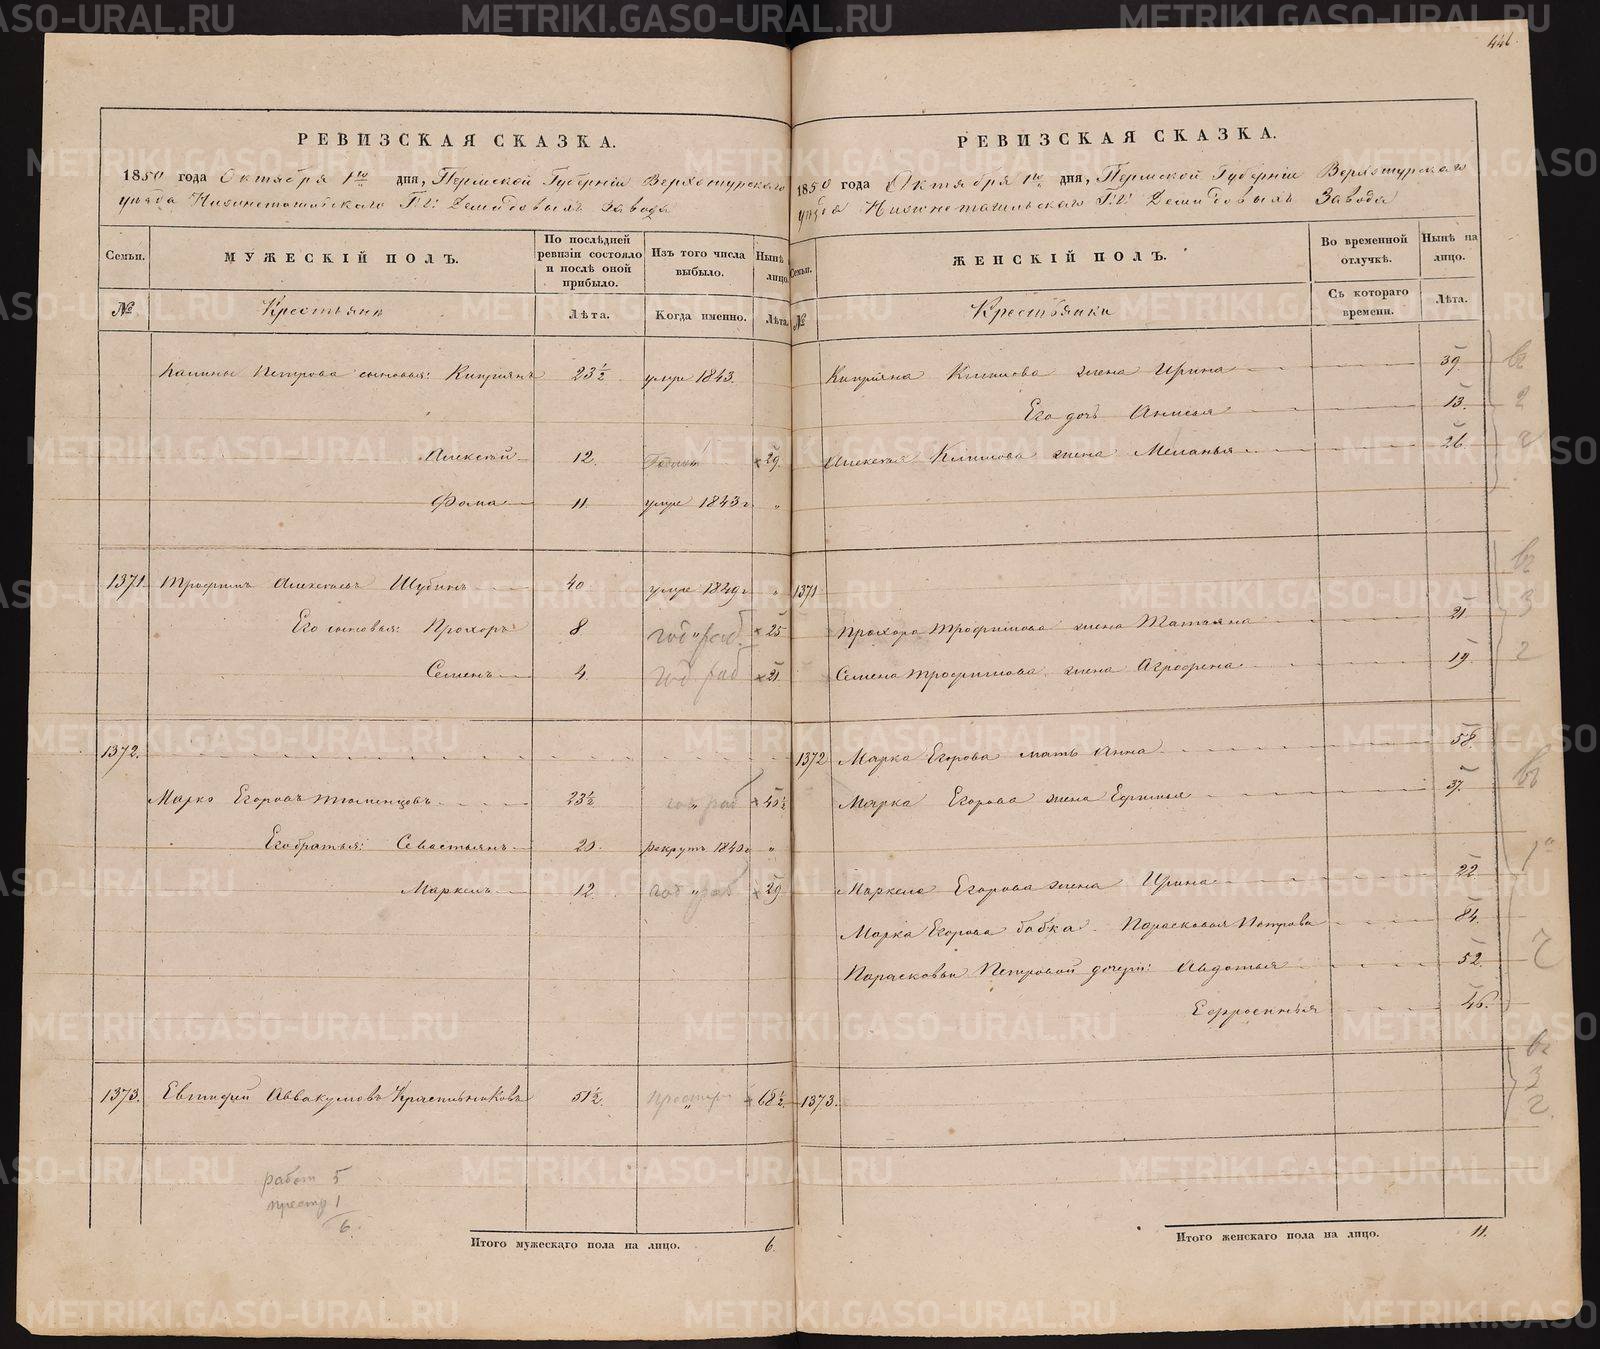 446.
РЕВИЗСКАЯ СКАЗКА.
1850 года Октября 1го дня, Пермской Губерніи Верхотурскаго
уѣзда Нижнетагильскаго Г.г. Демидовыхъ завода
Семьи. МУЖЕСКІЙ ПОЛЪ. По послѣдней ревизіи состояло и послѣ оной прибыло. Изъ того числа выбыло. Нынѣ на лицо.
№ Крестьянъ Лѣта. Когда именно. Лѣта.
Петрова сыновья: Кипріянъ 23½ умре 1843.
Алексѣй 12. 29.
Фома 11 умре 1843 г. "
1371 Трофимъ Алексѣевъ Шубинъ 40 умре 1849 г. "
Его сыновья: Прохоръ 8 год раб. 25
Семенъ 4. год раб 21
1372.
Марко Егоровъ Тюменцовъ 23½ год раб 40½
Его братья: Севастьянъ 20. рекрутъ 1840 г. "
Маркелъ 12. год раб 29.
1373. Евтифей Аввакумовъ Красильниковъ 51½ престар 68½
работ 5
престр 1
6.
Итого мужескаго пола на лицо. 6.
РЕВИЗСКАЯ СКАЗКА.
1850 года Октября 1го дня, Пермской Губерніи Верхотурскаго
уѣзда Нижнетагильскаго Г.г. Демидовыхъ Завода
Семьи. ЖЕНСКІЙ ПОЛЪ. Во временной отлучкѣ. Нынѣ на лицо.
№ Крестьянки Съ котораго времени. Лѣта.
Кипріяна Климова жена Ирина 39.
Его дочь Анисья 13.
Алексѣя Климова жена Меланья 26.
1371
Прохора Трофимова жена Татьяна 21
Семена Трофимова жена Агрофена 19.
1372 Марка Егорова мать Анна 58.
Марка Егорова жена Ефимья 37.
Маркела Егорова жена Ирина 22
Марка Егорова бабка Парасковья Петрова 84.
Парасковьи Петровой дочери: Авдотья 52.
Ефросинья 46.
1373.
Итого женскаго пола на лицо. 11.
METRIKI.GASO-URAL.RU